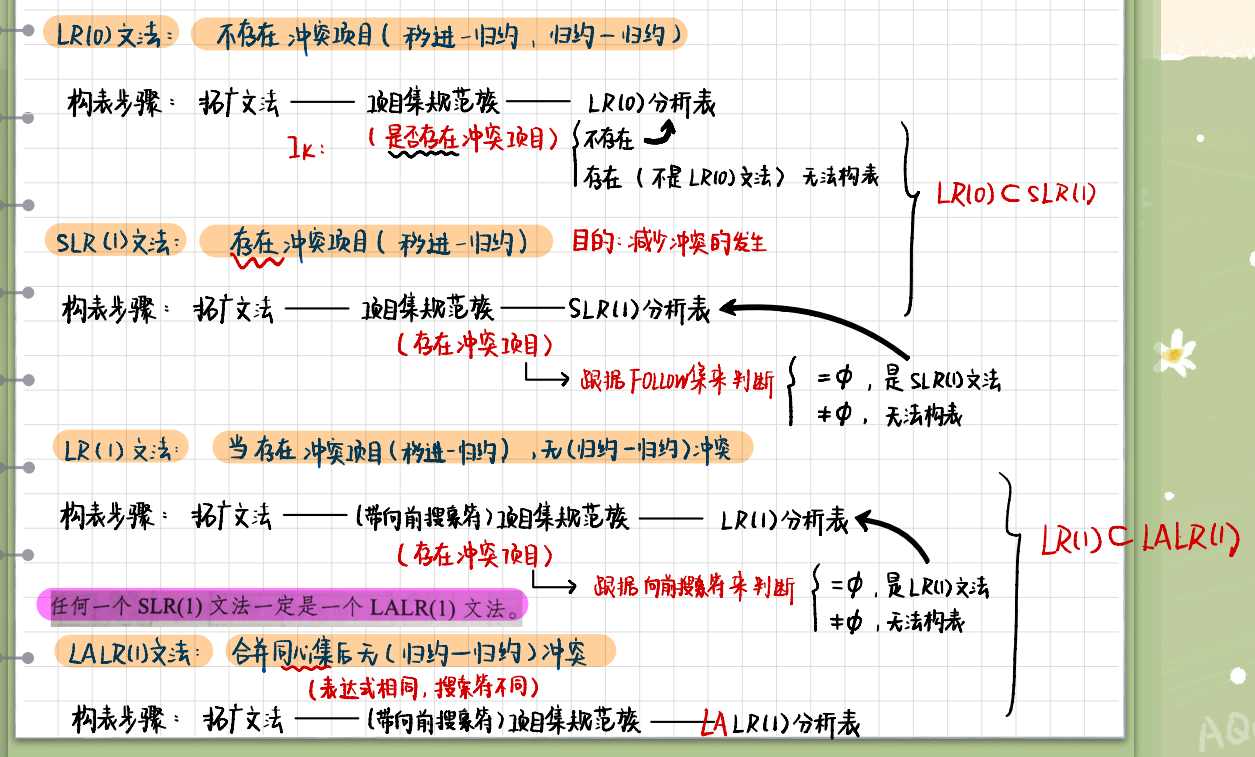 LR(0)文法： 不存在冲突项目(移进-归约，归约-归约)
构表步骤： 拓广文法 —— 项目集规范族 —— LR(0)分析表
Iκ： (是否存在冲突项目) { 不存在
存在(不是LR(0)文法) 无法构表
LR(0)⊂SLR(1)
SLR(1)文法： 存在冲突项目(移进-归约) 目的：减少冲突的发生
构表步骤： 拓广文法 —— 项目集规范族 —— SLR(1)分析表
(存在冲突项目)
跟据FOLLOW集来判断 { =φ，是SLR(1)文法
≠φ，无法构表
LR(1)文法： 当存在冲突项目(移进-归约)，无(归约-归约)冲突
构表步骤： 拓广文法 —— (带向前搜索符)项目集规范族 —— LR(1)分析表
(存在冲突项目)
跟据向前搜索符来判断 { =φ，是LR(1)文法
≠φ，无法构表
LR(1)⊂LALR(1)
任何一个 SLR(1) 文法一定是一个 LALR(1) 文法。
LALR(1)文法： 合并同心集后无(归约-归约)冲突
(表达式相同，搜索符不同)
构表步骤： 拓广文法 —— (带向前搜索符)项目集规范族 —— LALR(1)分析表